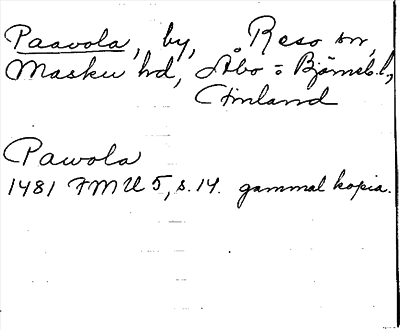 Paavola, by, Reso sn,
Masku hd, Åbo = Björneb. l,
Finland
Pawola
1481 FMU 5, s. 14. gammal kopia.